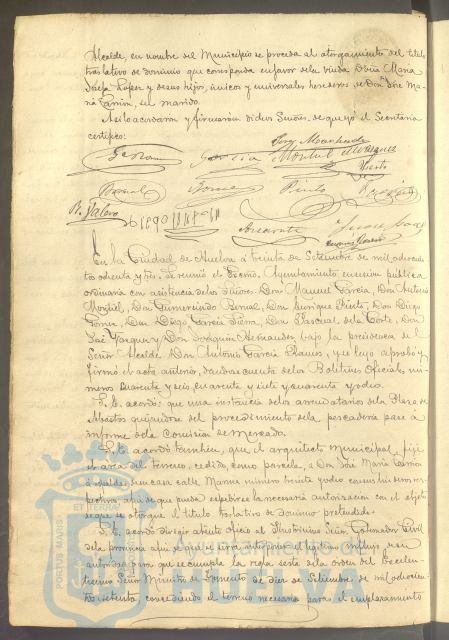 Alcalde, en nombre del Municipio se proceda al otorgamiento del título
traslativo de dominio que corresponda en favor de la viuda Doña Maria
Josefa Lopez y de sus hijos, únicos y universales herederos de Don José Ma
ria, su marido.
Asi lo acordaron y firmaron dichos Señores, de que yo el Secretario
certifico:
García
Bernal Pinto
En la Ciudad de Huelva á treinta de Setiembre de mil ochocien
tos ochenta y tres. Se reunió el Excmo. Ayuntamiento en sesión publica
ordinaria con asistencia de los Señores Don Manuel Garcia, Don Antonio
Montiel, Don Gumersindo Bernal, Don Enrique Pinto, Don Diego
Don Diego Garcia Don Pascual de la Corte, Don
José Vazquez y Don Joaquin Hernandez, bajo la presidencia del
Señor Alcalde Don Antonio Garcia Ramos, y se leyó, aprobó y
firmó el acta anterior, dandose cuenta de los Boletines oficiales nú-
meros cuarenta y seis, cuarenta y siete y cuarenta y ocho.
S. E. acordó: que una instancia de los arrendatarios de la Plaza de
Abastos quejandose del procedimiento de la pescadería pase á
informe de la Comision de Mercado.
S. E. acordó tambien, que el arquitecto Municipal fije
el area del terreno, cedido como parcela, á Don José Maria
á espaldas de su casa calle Marina número veinte y ocho con sus linderos res-
pectivos, afin de que pueda expedirse la necesaria autorizacion con el objeto
de que se otorgue el titulo traslativo de dominio pretendido.
S. E. acordó dirigir atento oficio al Ilustrisimo Señor Gobernador Civil
de la provincia afin de que se sirva interponer el lujo é influjo de su
autoridad para que se cumpla la regla sesta de la orden del Excelen-
tisimo Señor Ministro de Fomento de diez de Setiembre de mil ochocien-
tos setenta, concediendo el terreno necesario para el emplazamiento
PORTUS MARIS
ET TERRAE
Ayuntamiento de